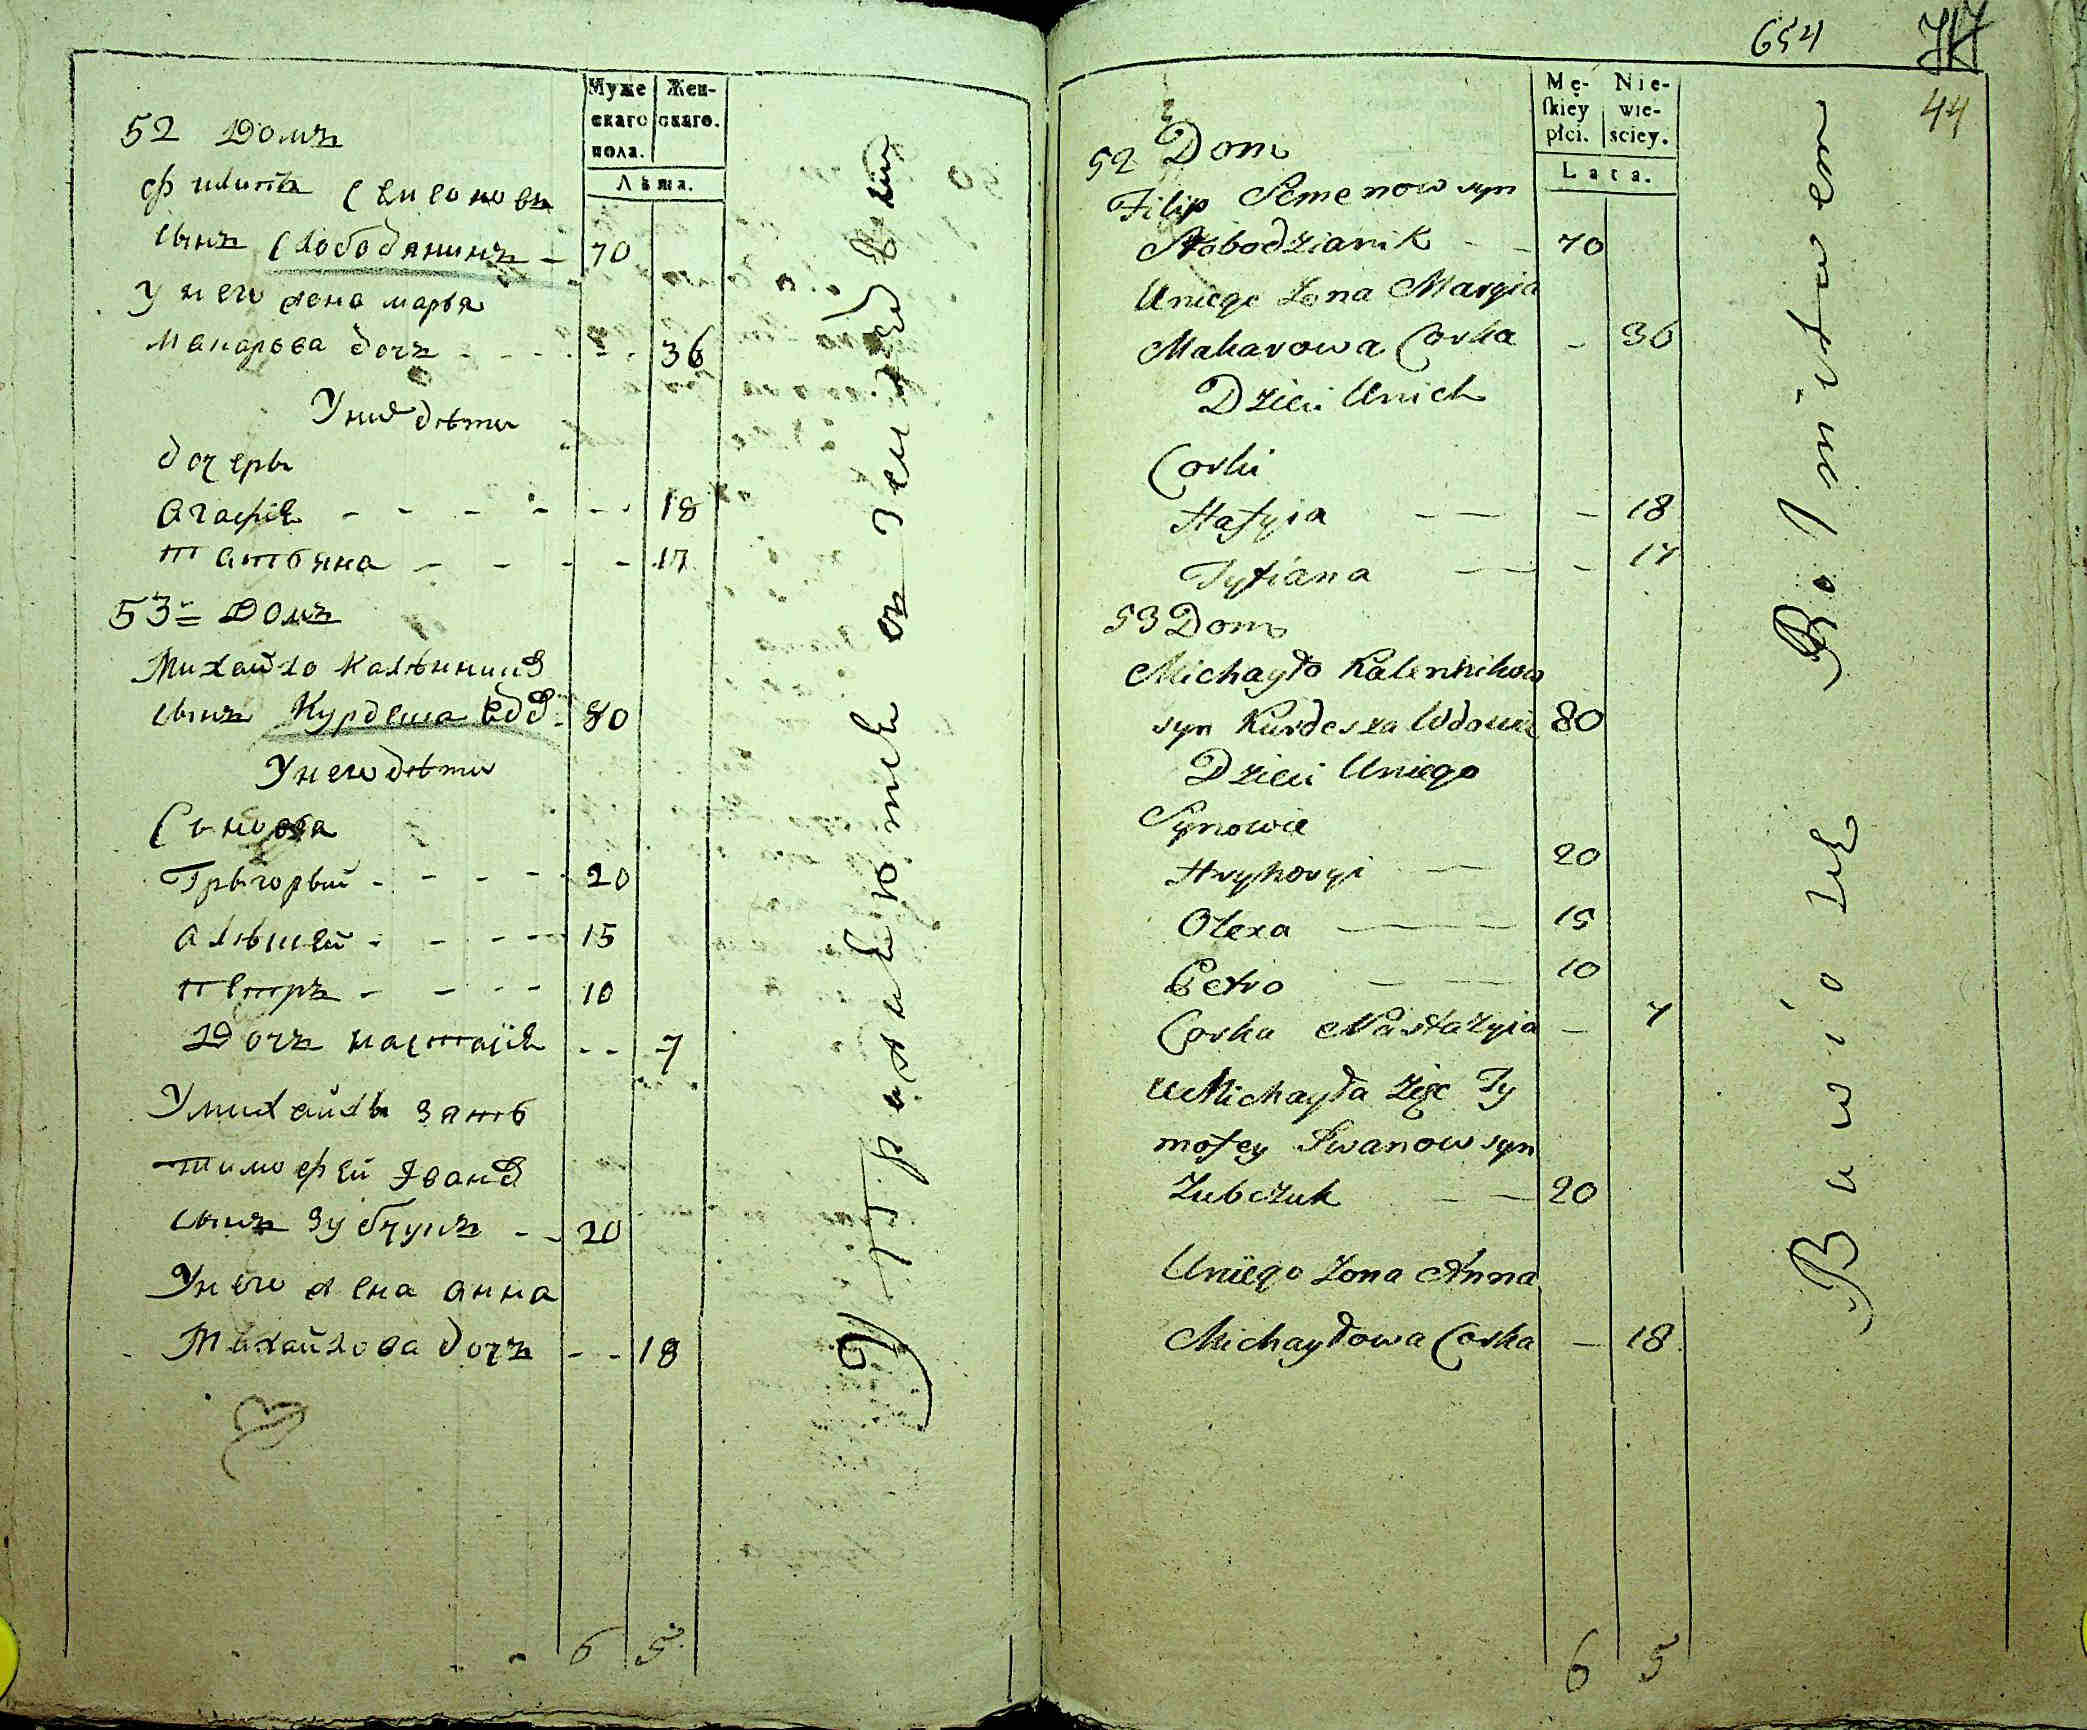 Муже
скаго
пола.
Жен-
скаго.
Лѣта.
52 Домъ
Филипъ Семеновъ
сынъ Слободянинъ - 70
У него жена марья
макарова дочъ - - - - - 36
У них дѣти
дочеры
агафія - - - - - - 18
татьяна - - - - 17
53 Домъ
Михайло Калѣников
сынъ Курдеша вдов. 80
У него дѣти
Сыновья
Грыгорый - - - - - 20
алѣксей - - - - 15
петръ - - - - 10
Дочъ настасія - - 7
У михайлы зять
тимофей Іванов
сынъ зубчукъ - - 20
У него жена анна
Михайлова дочъ - - 18
6 5
Упражняются въ земледеліи
654
44
Mę-
skiey
płci.
Nie-
wie-
sciey.
Lata.
52 Dom
Filip Semenow syn
Słobodzianik - - 70
Uniego Żona Maryia
Makarowa Corka - 36
Dzieci Unich
Corki
Hafyia - - - 18
Tytiana - - - 17
53 Dom
Michayło Kalennikow
syn Kurdesza Wdowiec 80
Dzieci Uniego
Synowie
Hryhoryi - - 20
Olexa - - - 15
Petro - - - 10
Corka Nastazyia - 7
U Michayła Zięc Ty
mofey Iwanow syn
Zubczuk - - 20
Uniego Żona Anna
Michayłowa Corka - 18
6 5
Bawią się Rolnictwem